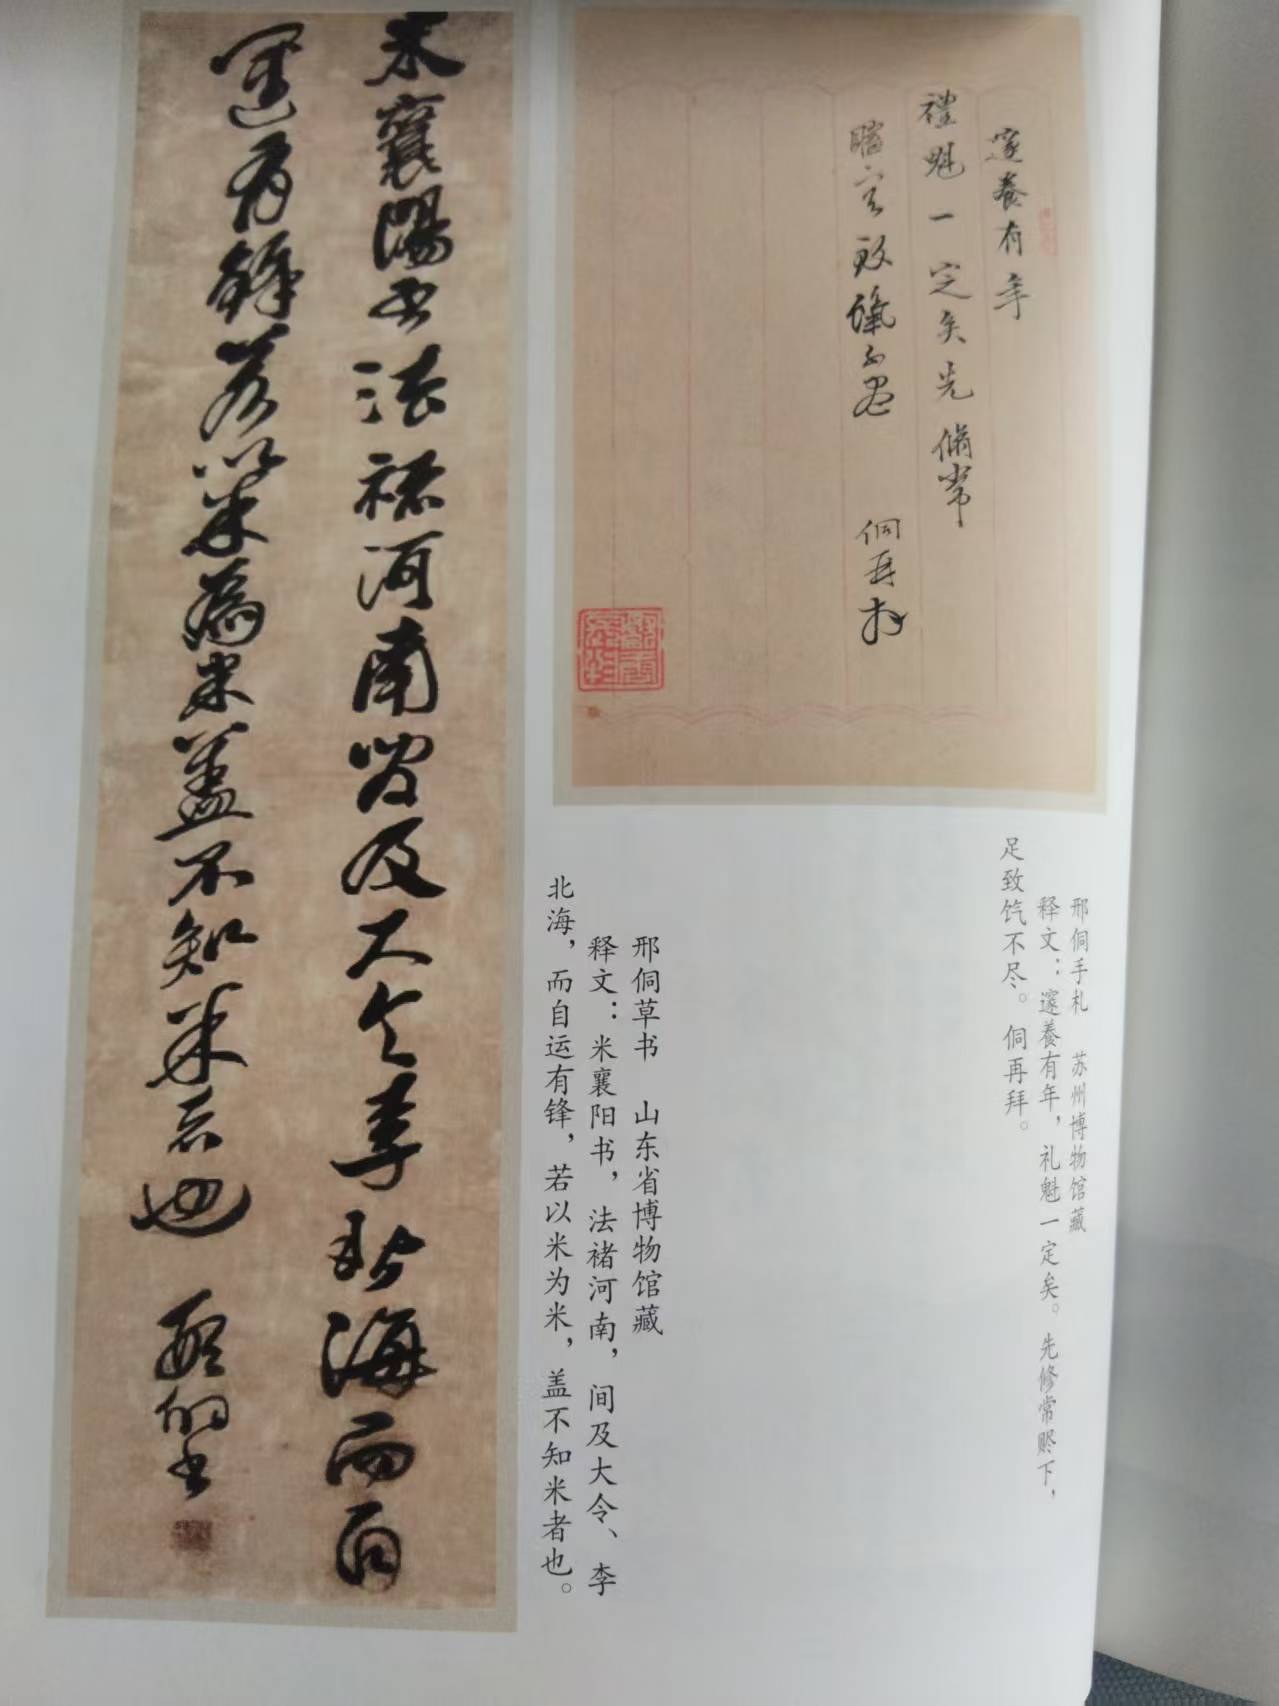 邃養有年
禮魁一定矣先脩常
賻下足致餼不盡 侗再拜
邢侗手札 苏州博物馆藏
释文：邃養有年，礼魁一定矣。先修常赆下，
足致饩不尽。侗再拜。
米襄陽書法褚河南間及大令李北海而自
運有鋒若以米為米蓋不知米者也 邢侗書
邢侗草书 山东省博物馆藏
释文：米襄阳书，法褚河南，间及大令、李
北海，而自运有锋，若以米为米，盖不知米者也。